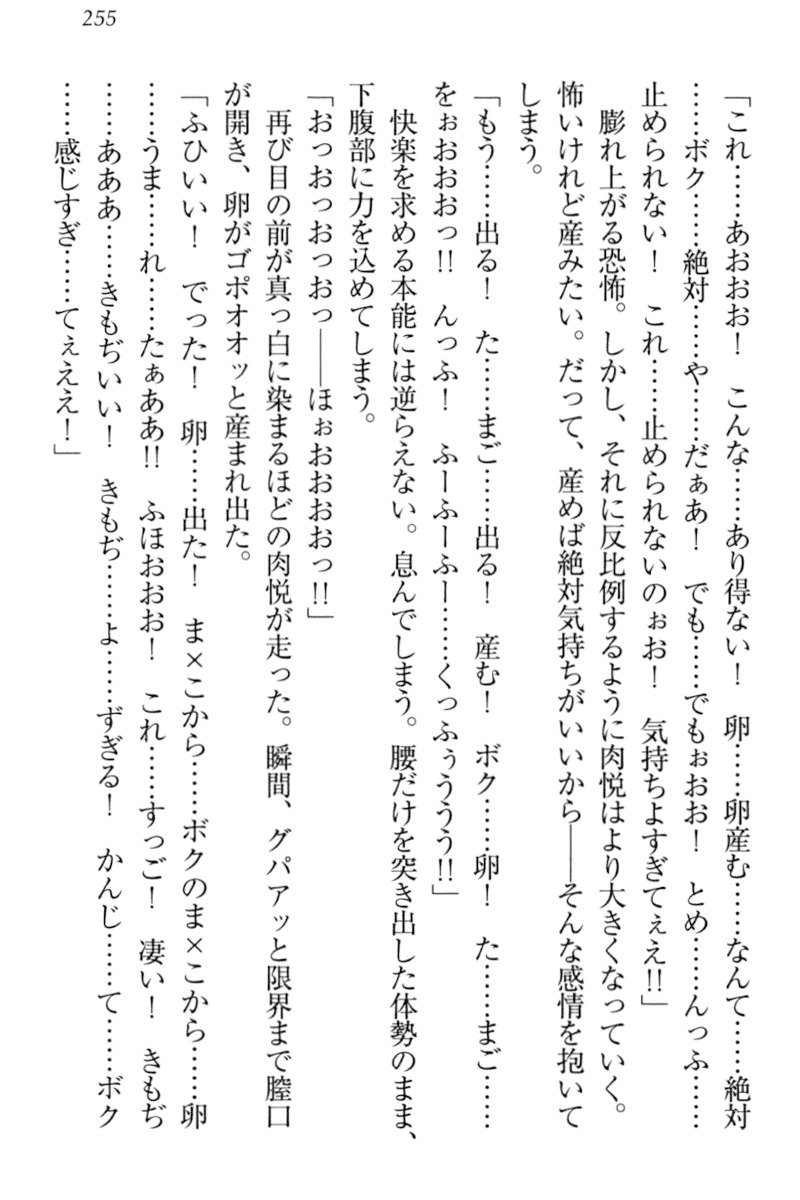 255
「これ……あおおお！　こんな……あり得ない！　卵……卵産む……なんて……絶対
……ボク……絶対……や……だぁあ！　でも……でもぉおお！　とめ……んっふ……
止められない！　これ……止められないのぉお！　気持ちよすぎてぇえ!!」
　膨れ上がる恐怖。しかし、それに反比例するように肉悦はより大きくなっていく。
怖いけれど産みたい。だって、産めば絶対気持ちがいいから――そんな感情を抱いて
しまう。
「もう……出る！　た……まご……出る！　産む！　ボク……卵！　た……まご……
をぉおおおっ!!　んっふ！　ふーふーふー……くっふぅううう!!」
　快楽を求める本能には逆らえない。息んでしまう。腰だけを突き出した体勢のまま、
下腹部に力を込めてしまう。
「おっおっおっおっ――ほぉおおおおっ!!」
　再び目の前が真っ白に染まるほどの肉悦が走った。瞬間、グパアッと限界まで膣口
が開き、卵がゴポオオッと産まれ出た。
「ふひいい！　でった！　卵……出た！　ま×こから……ボクのま×こから……卵
……うま……れ……たぁああ!!　ふほおおお！　これ……すっご！　凄い！　きもぢ
……あああ……きもぢいい！　きもぢ……よ……ずぎる！　かんじ……て……ボク
……感じすぎ……てぇええ！」